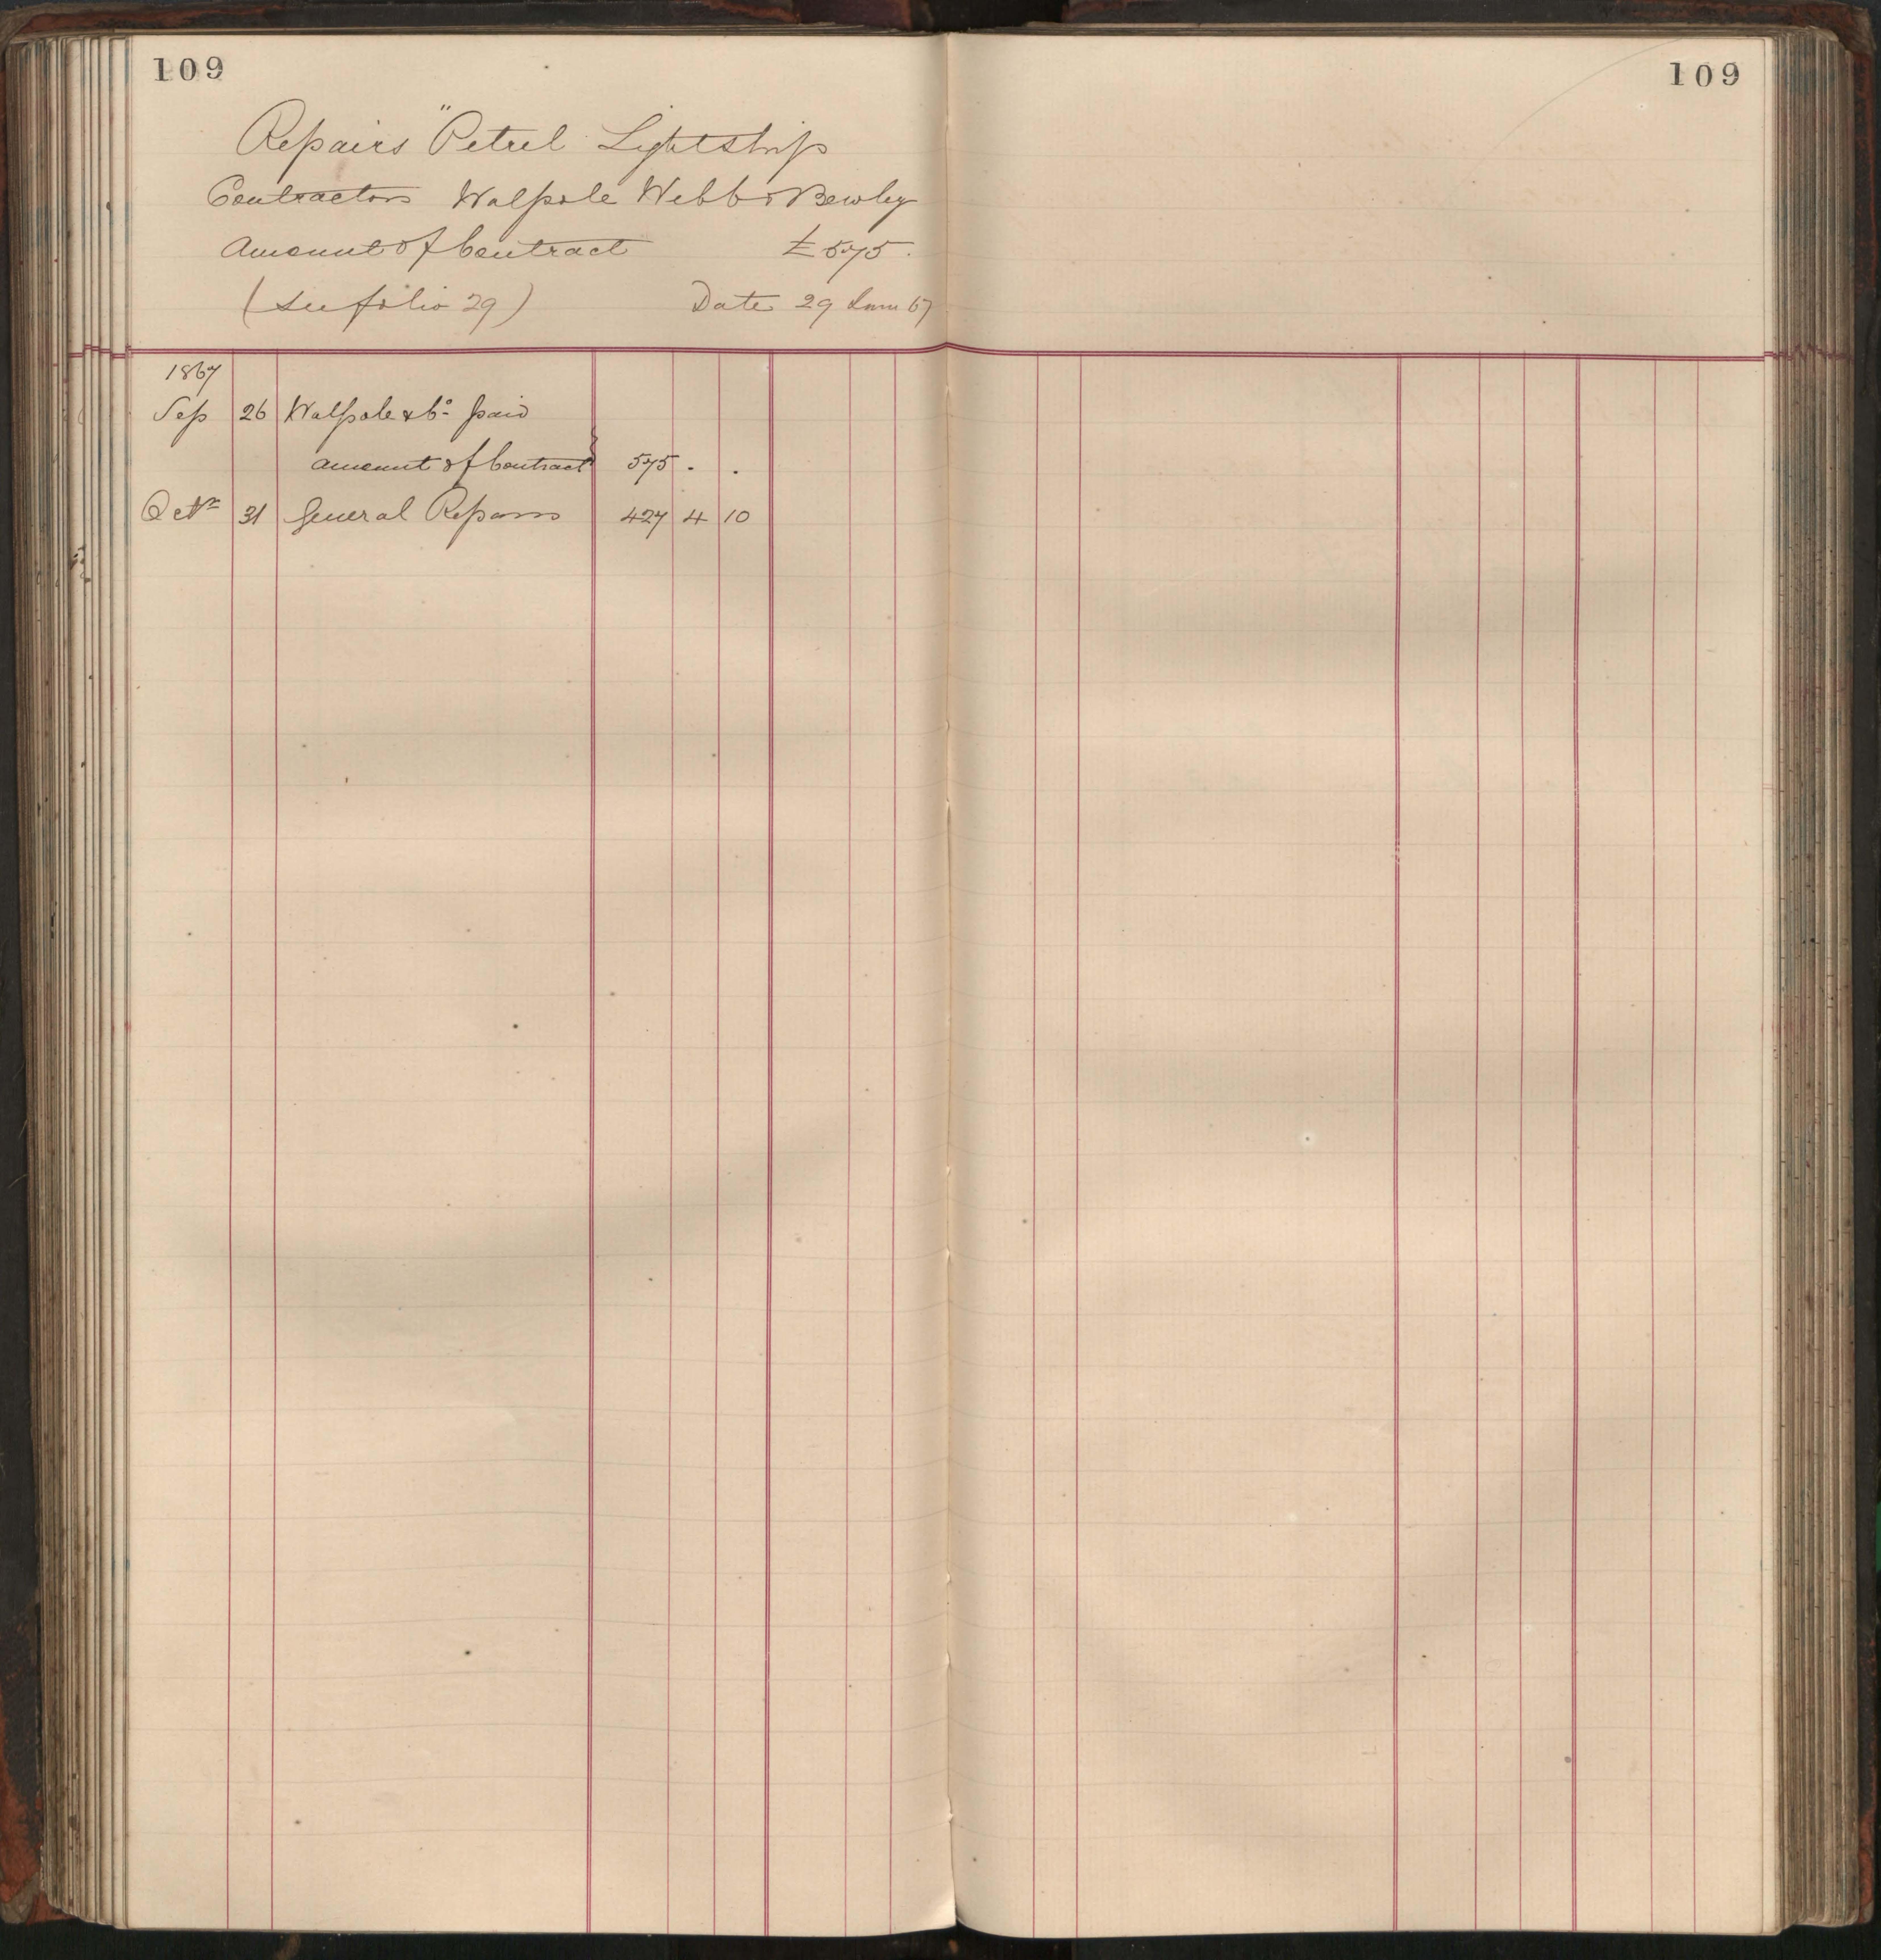 109
109
Repairs "Petrel Lightship
Contractors Walpole Webb & Bewley
Amount of Contract £575.
(See folio 29) Date 29 June 67
1867
Sep 26 Walpole & Co. paid
amount of Contract } 575 . .
Octr 31 General Repairs 427 4 10